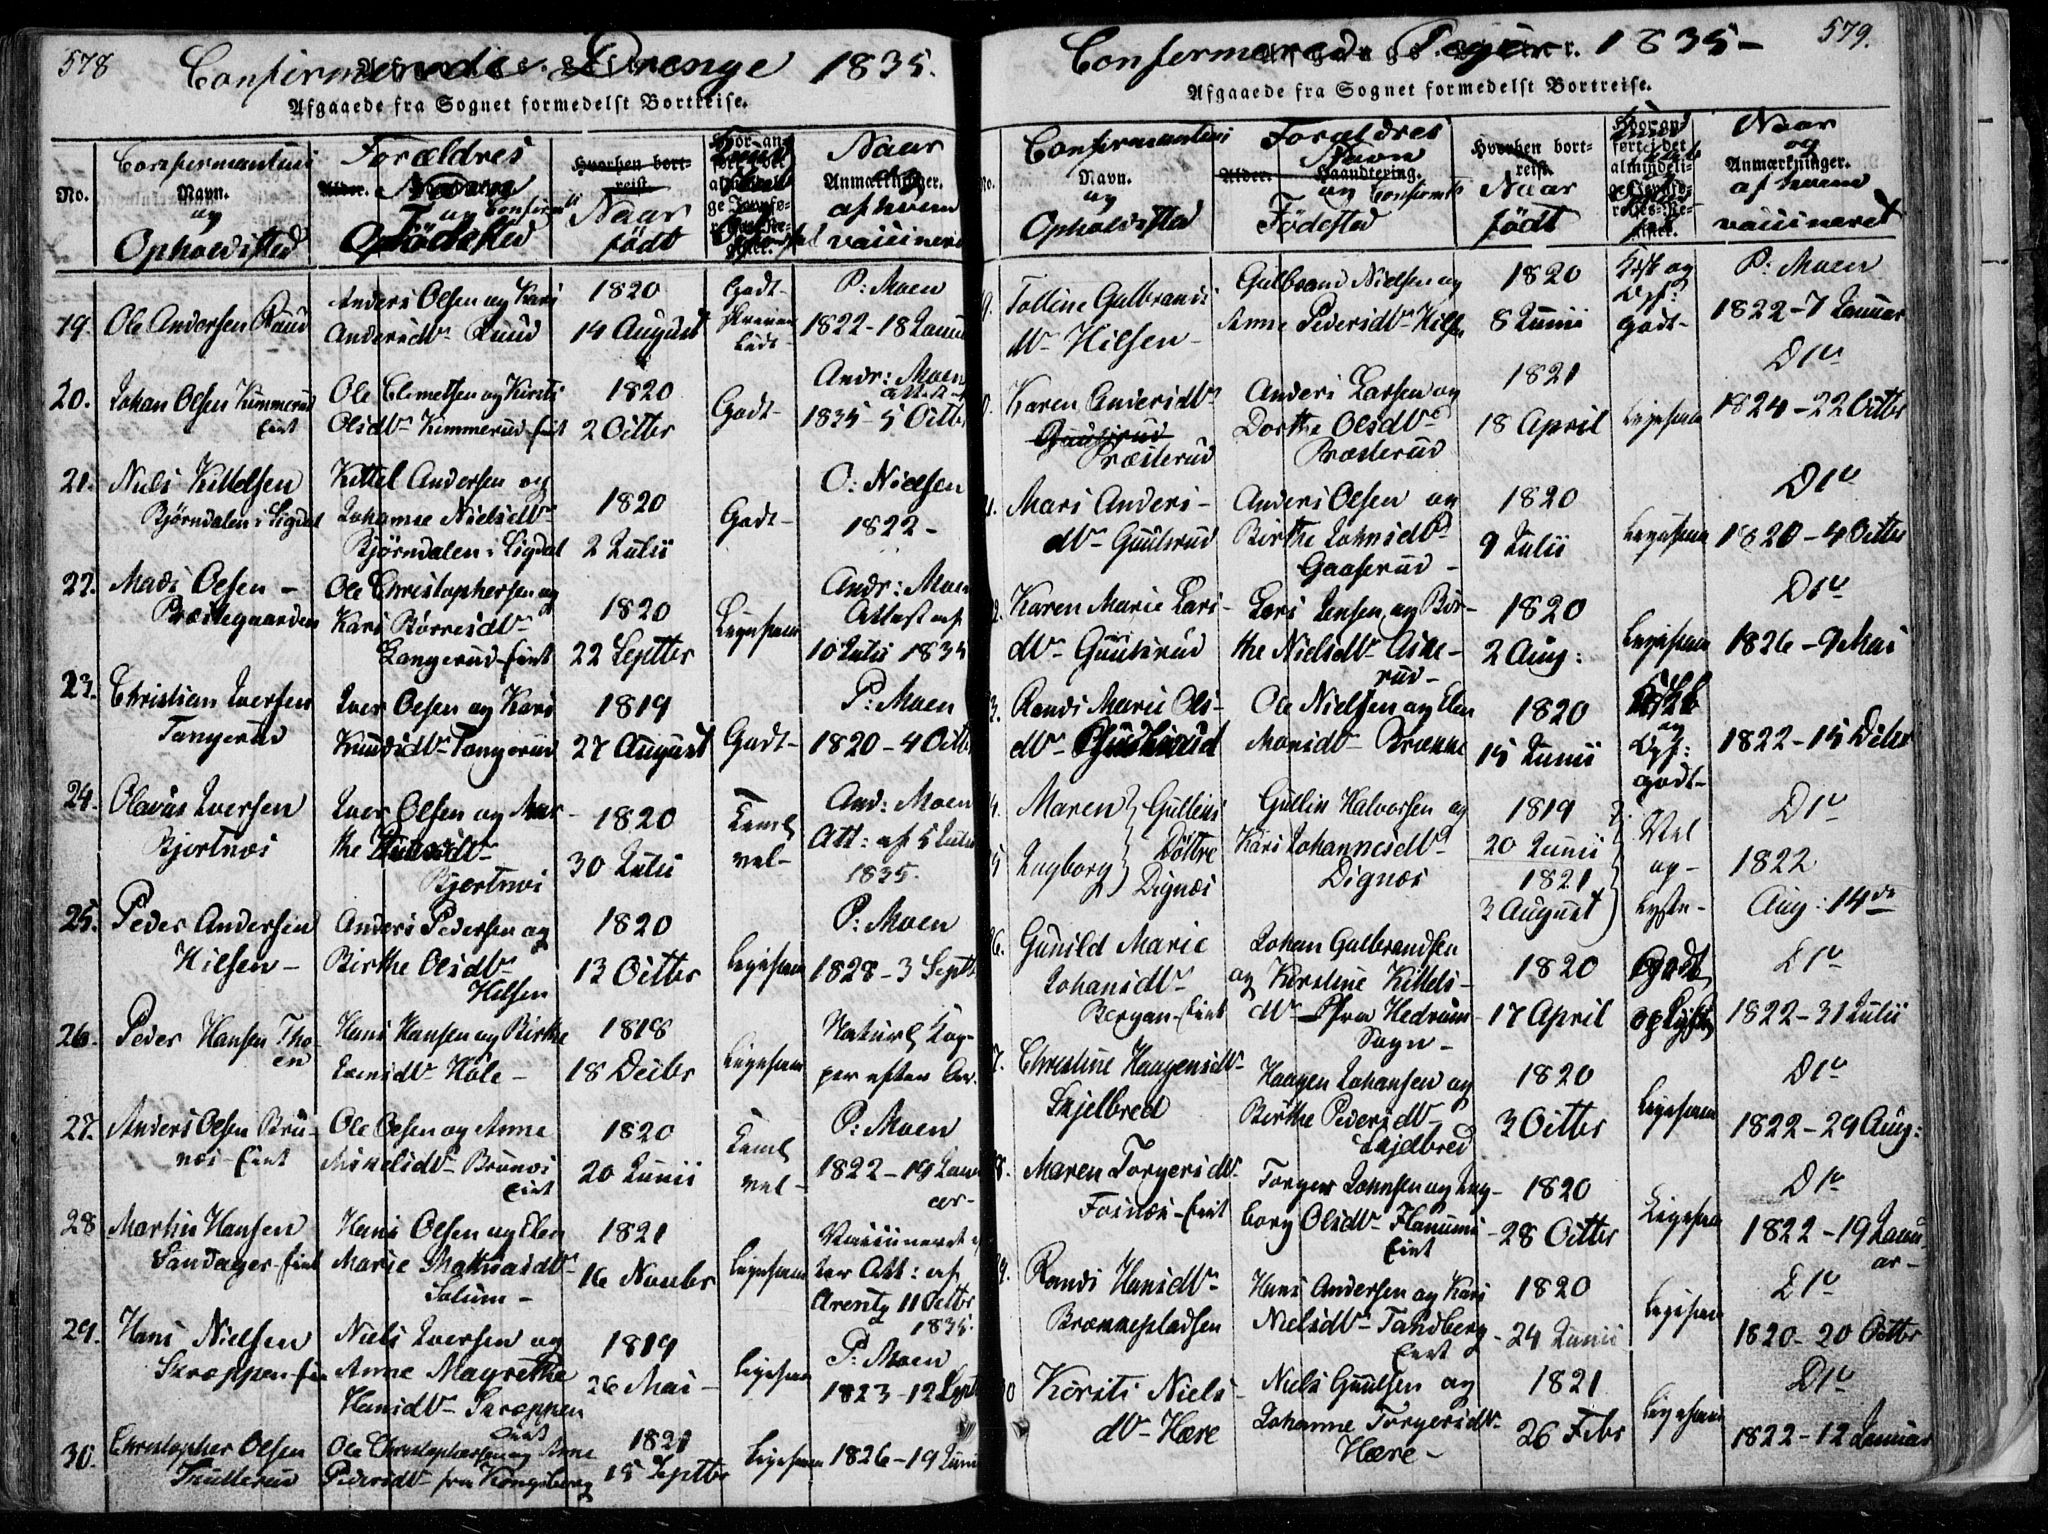 578
Confirmerede Drenge 1835.
Afgaaede fra Sognet formedelst Bortreise.
No.
Confirmantens Navn. og Opholdssted
Forældres Navn og Confirmts Fødested
Alder.
Hvorhen bortreist.
Naar født
Naar og Anmærkninger. af hvem vaccineret
19. Ole Andersen Ruud
Anders Olsen og Kari
Andersdtr Ruud
1820
14 August
Godt
P: Moen
1822 - 18 Januar
20. Johan Olsen Kimmerud
Eiet
Ole Clemetsen og Kirsti
Olsdtr Kimmerud-Eiet
1820
2 Octbr
Godt-
Andr: Moen
Att.
1835 - 5 Octbr
21. Niels Kittelsen
Bjørndalen i Sigdal
Kittel Andersen og
Johanne Nielsdtr
Bjørndalen i Sigdal
1820
2 Julii
Godt-
O: Nielsen
1822-
22. Mads Olsen -
Præstegaarden
Ole Christophersen og
Kari Børresdtr
Langerud-Eiet
1820
22 Septbr
Ligesaa
Andr: Moen
Attest af
10 Julii 1835
23. Christian Iversen
Tangerud
Iver Olsen og Kari
Knudsdtr Tangerud
1819
27 August
Godt-
P: Moen
1820 - 4 Octbr
24. Olavus Iversen
Bjertnæs
Iver Olsen og Mar-
the
Bjertnæs
1820
30 Julii
Teml
vel-
And: Moen
Att: af 5 Julii
1835.
25. Peder Andersen
Hilsen-
Anders Pedersen og
Birthe Olsdtr
Hilsen
1820
13 Octbr
Ligesaa
P: Moen
1828 - 3 Septbr
26. Peder Hansen Tho-
en
Hans Hansen og Birthe
Hole-
1818
18 Decbr
Ligesaa
Naturl Kop-
per efter Ar.
27. Anders Olsen Bru-
næs-Eiet
Ole Olsen og Anne
Mikelsdtr Brunæs
Eiet
1820
20 Junii
Teml
vel-
P: Moen
1822 - 19 Janu-
ar-
28 Martin Hansen
Sandager-Eiet
Hans Olsen og Elen
Marie Mathiasdtr
Solum-
1821
16 Novbr
Ligesaa
Vaccineret
Att: af
Arentz 11 Octbr
1835.
29. Hans Nielsen
Skroppen-Eie
Niels Iversen og
Anne Magrethe
Hansdtr Skroppen
Eiet
1819
26 Mai-
Ligesaa
P: Moen
1823 - 12 Sept
30. Christopher Olsen
Trulterud
Ole Christophersen og Anne
Pedersdtr fra Kongsberg
1821
15 Septbr
Ligesaa
1826 - 19 Junii
579.
Confirmerede Piger 1835-
Afgaaede fra Sognet formedelst Bortreise.
No.
Confirmantens Navn. og Opholdssted
Forældres Navn og Confirmts Fødested
Alder. Haandtering.
Hvorhen bortreist.
Naar født
Naar og Anmærkninger. af hvem vaccineret
9. Tolline Gulbrands
dtr Hilsen-
Gulbrand Nielsen og
Anne Pedersdtr Hilsen
1820
8 Junii
og
Opf:
godt-
P: Moen
1822 - 7 Januar
Karen Andersdtr
Præsterud
Anders Larsen og
Dorthe Olsdtr
Præsterud
1821
18 April
Ligesaa
Dto
1824 - 22 Octbr
Mari Anders-
dtr Guulsrud
Anders Olsen og
Birthe Johnsdtr
Gaaserud-
1820
9 Julii
Ligesaa
Dto
1820 - 4 Octbr
Karen Marie Lars-
dtr Guulsrud
Lars Jensen og Bir-
the Nielsdtr Aske-
rud-
1820
2 Aug:
Ligesaa
Dto
1826 - 9 Mai
3. Randi Marie Ols-
dtr
Ole Nielsen og Elen
Monsdtr Brække
1820
15 Junii
og
Opf:
godt-
1822 - 15 Decbr
Maren } Gullins
Ingborg } Døttre
Dignæs
Gullin Halvorsen og
Kari Johannesdtr
Dignæs
1819
20 Junii
1821
3 August
Vel
op-
lyste-
Dto
1822
Aug: 14de
26. Gunild Marie
Johansdtr
Bergan-Eiet
Johan Gulbrandsen
og Kirstine Kittels-
dtr fra Hedrum
Sogn-
1820
17 April
Godt
oplyst
Dto
1822 - 31 Julii
7. Christine Haagensdtr-
Skjelbred
Haagen Johansen og
Birthe Pedersdtr
Skjelbred
1820
3 Octbr
Ligesaa
Dto
1822 - 29 Aug:
8. Maren Torgersdtr
Fosnæs-Eiet
Torger Johnsen og Ing-
borg Olsdtr
Eiet
1820
28 Octbr
Ligesaa
Dto
1822 - 19 Janu-
ar-
9. Randi Hansdtr
Brænnepladsen
Hans Andersen og Kari
Nielsdtr Tandberg
Eiet
1820
24 Junii
Ligesaa
Dto
1820 - 20 Octbr
30 Kirsti Niels-
dtr Hære
Niels Guulsen og
Johanne Torgersdtr
Hære-
1821
26 Febr
Ligesaa
Dto
1822 - 12 Januar